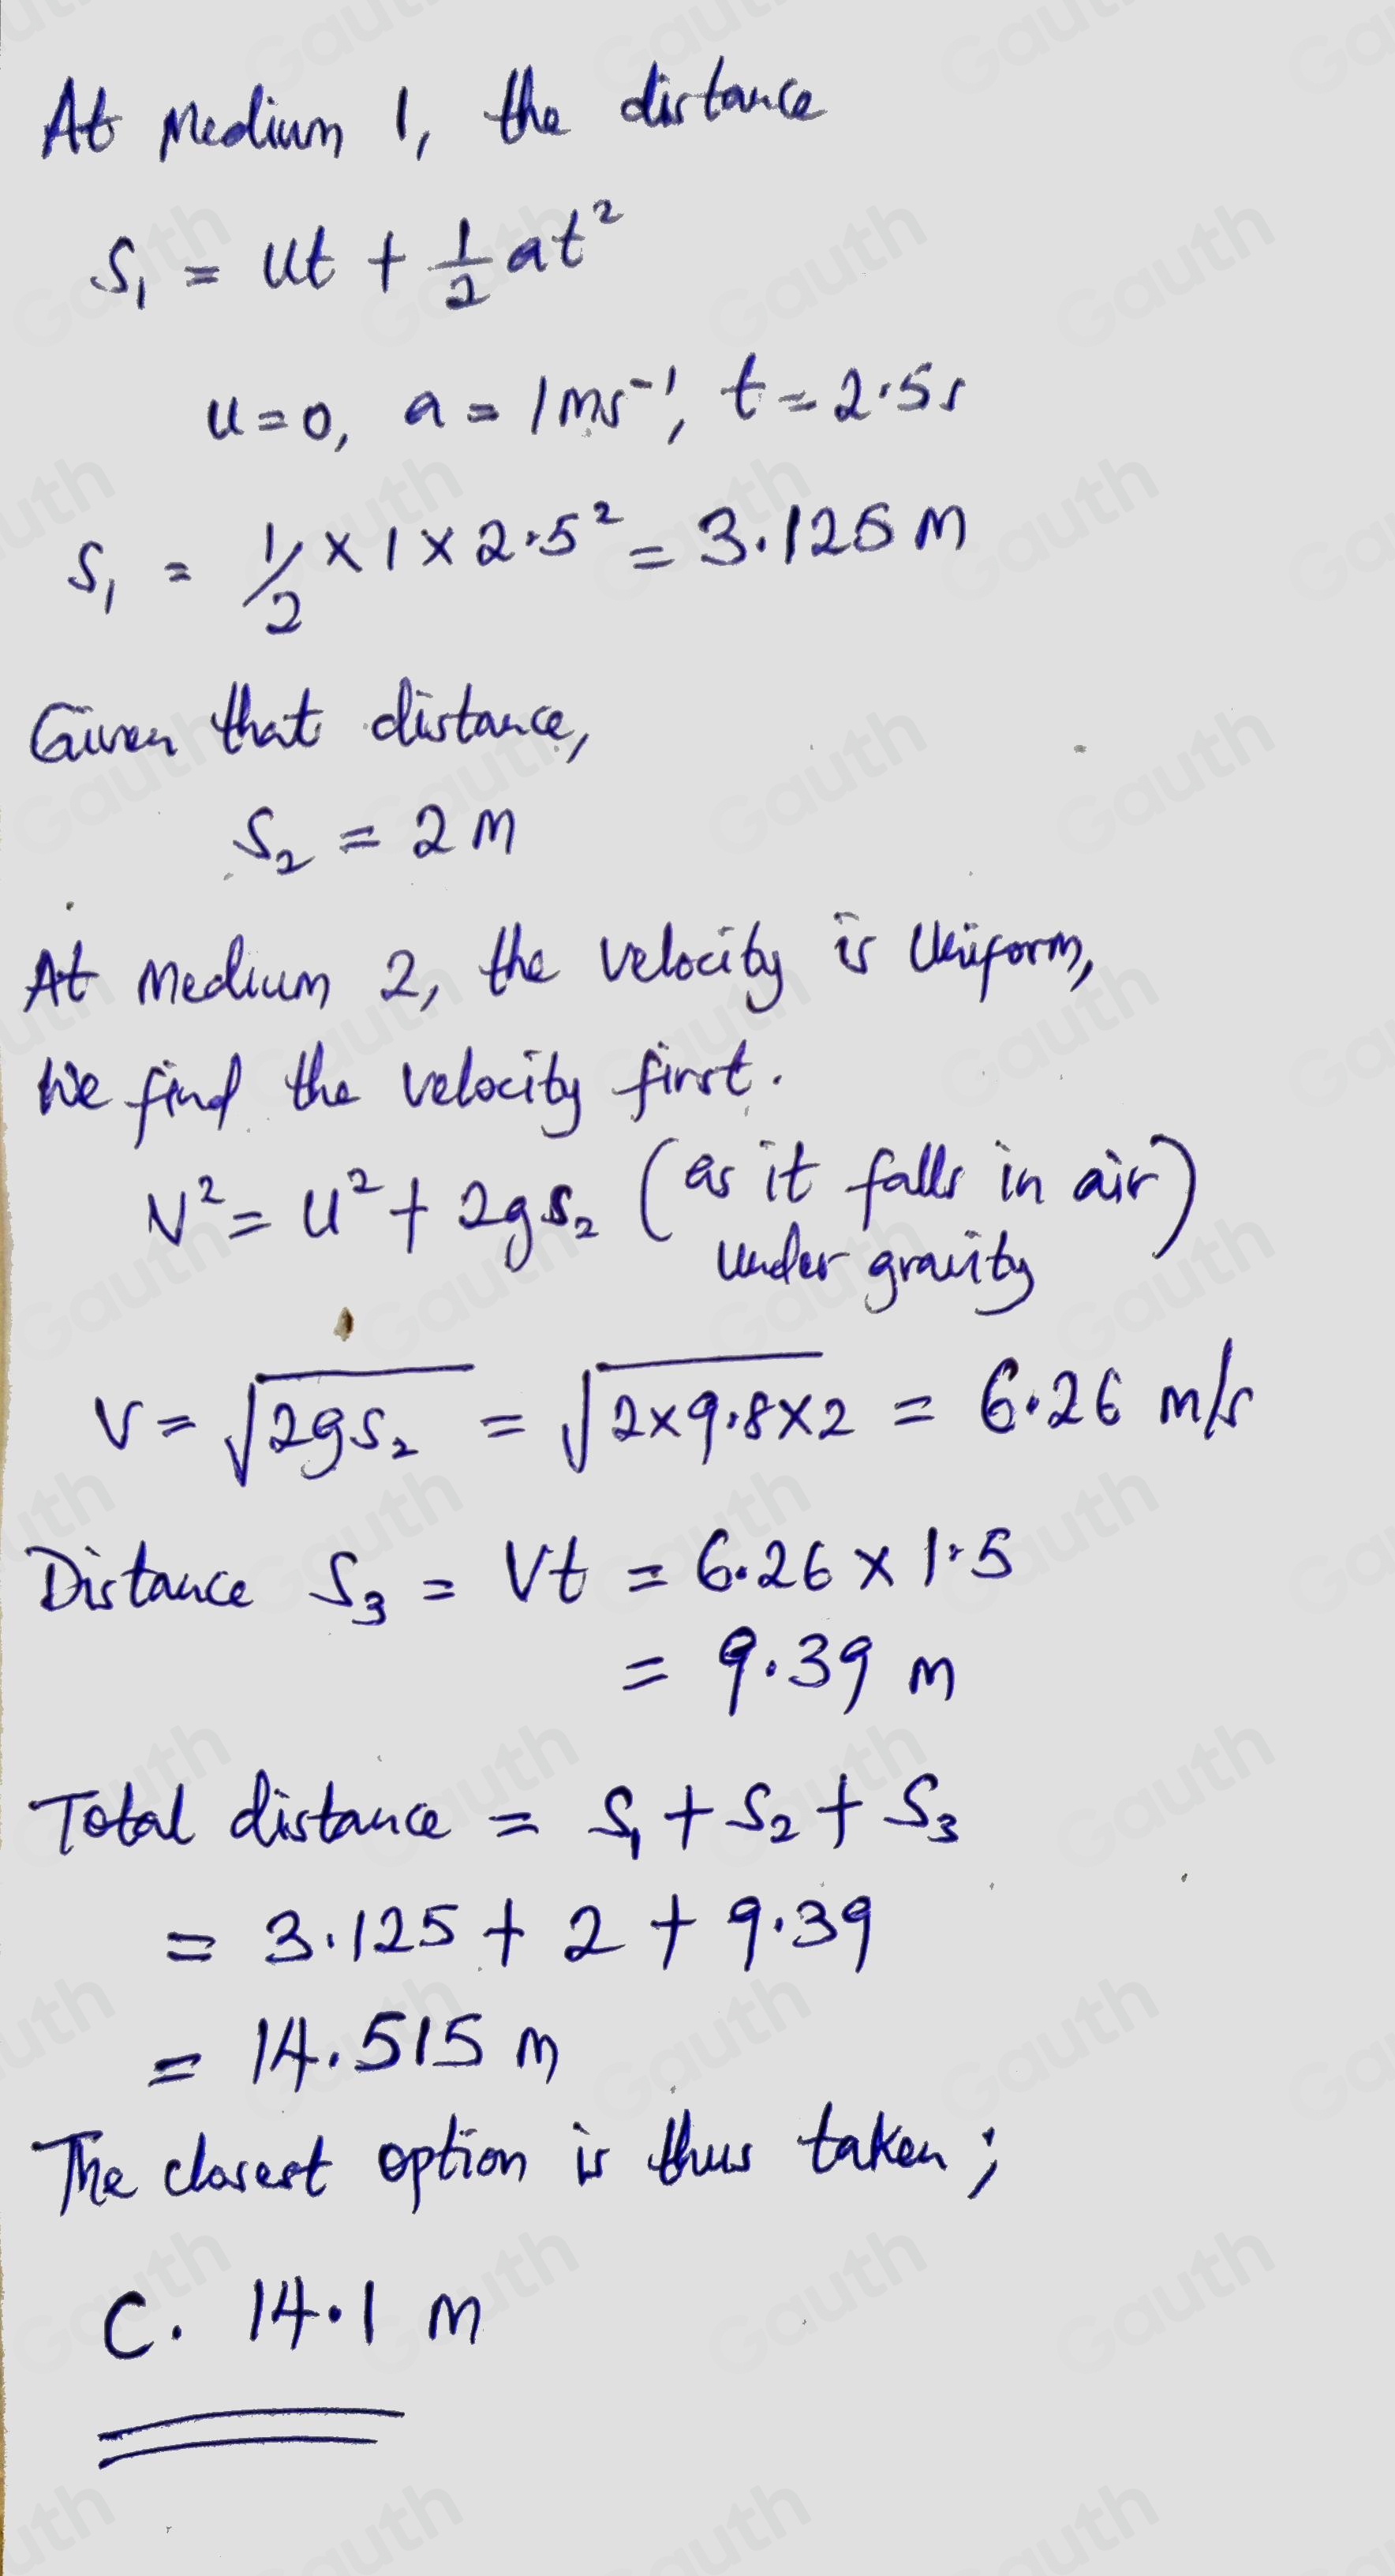 At Medium 1, the distance
S₁ = ut + 1/2 at²
u=0, a = 1ms⁻¹, t = 2.5s
S₁ = 1/2 × 1 × 2.5² = 3.125 m
Given that distance,
S₂ = 2 m
At Medium 2, the velocity is Uniform,
We find the velocity first.
V² = u² + 2gs₂ (as it falls in air)
under gravity
V = √2gs₂ = √2×9.8×2 = 6.26 m/s
Distance S₃ = Vt = 6.26 × 1.5
= 9.39 m
Total distance = S₁ + S₂ + S₃
= 3.125 + 2 + 9.39
= 14.515 m
The closest option is thus taken;
C. 14.1 m
Gauth